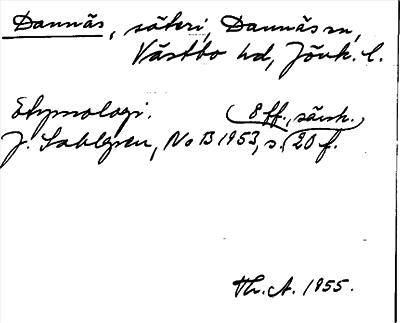 Dannäs, säteri, Dannäs sn,
Västbo hd, Jönk. l.
Etymologi. 8 ff., särsk.
J. Sahlgren, NoB 1953, s. 20 f.
Th. A. 1955.